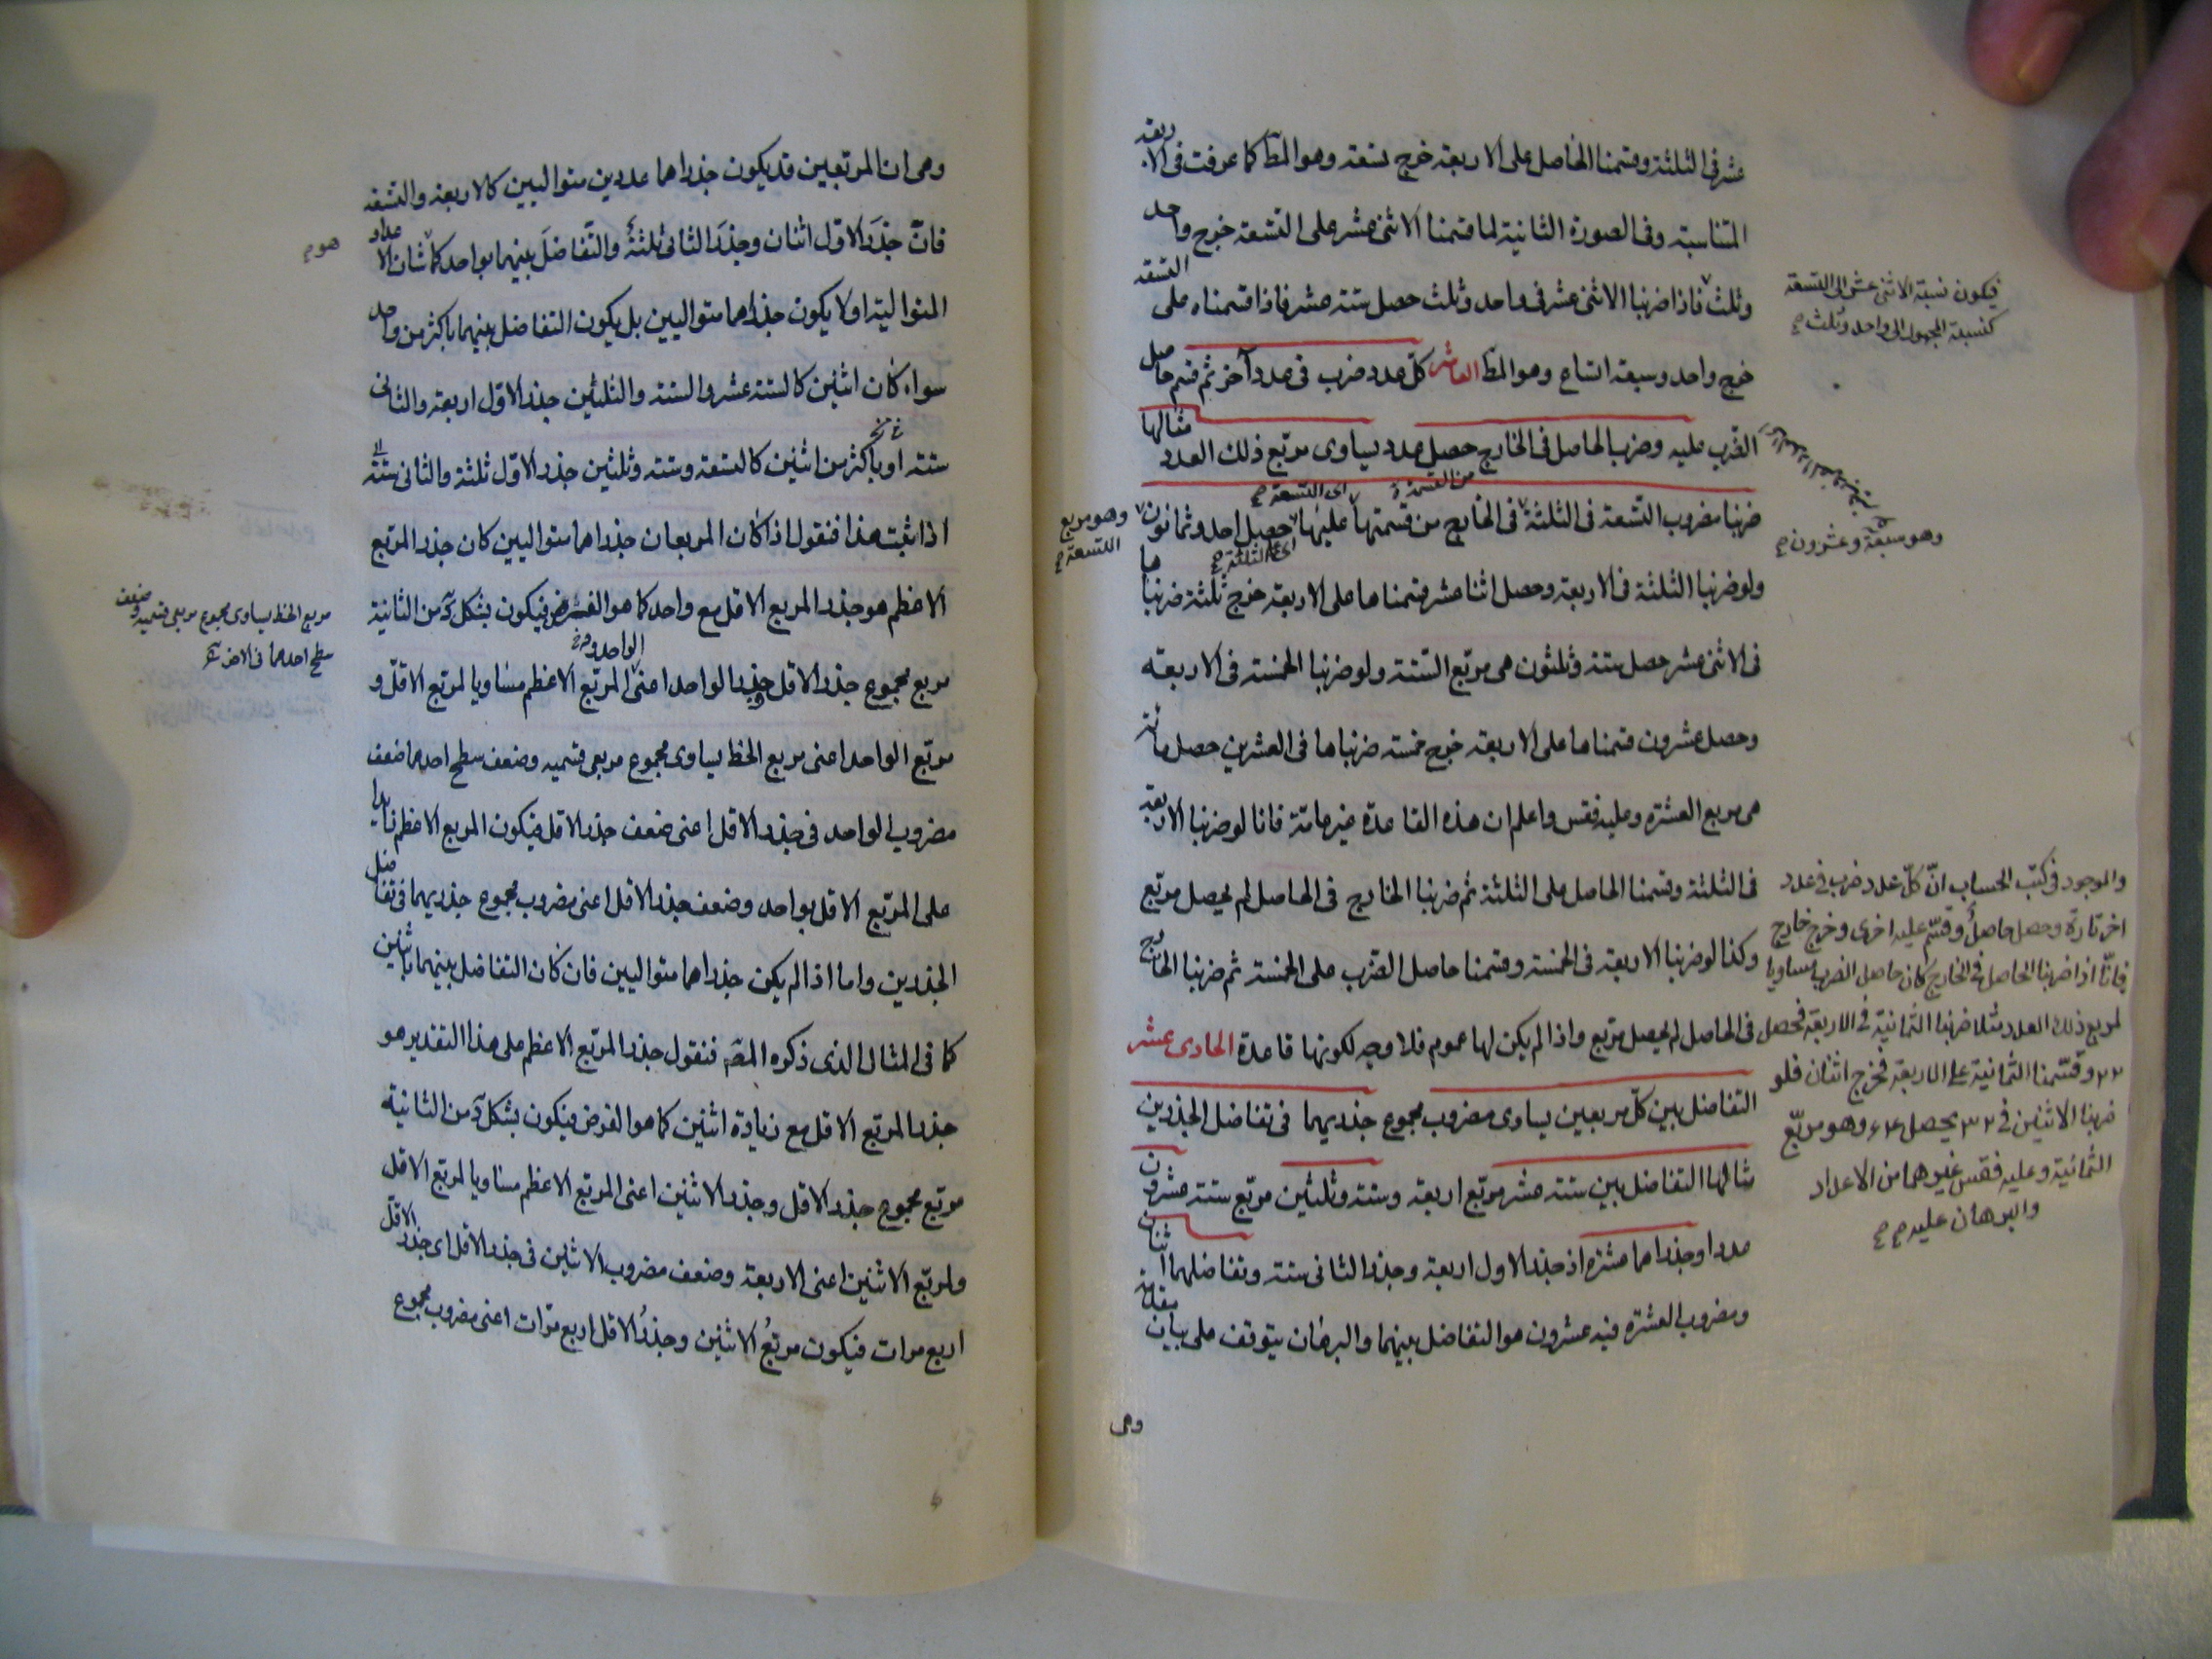 عشر فى الثلثة وقسمنا الحاصل على الاربعة خرج تسعة وهو المط كما عرفت فى الاربعة
المتناسبة وفى الصورة الثانية لما قسمنا الاثنى عشر على التسعة خرج واحد
وثلث فاذا ضربنا الاثنى عشر فى واحد وثلث حصل ستة عشر فاذا قسمناه على التسعة
خرج واحد وسبعة اتساع وهو المط العاشر كل عدد ضرب فى عدد آخر ثم قسم حاصل
الضرب عليه وضرب الحاصل فى الخارج حصل عدد يساوى مربع ذلك العدد مثالها
ضربنا مضروب التسعة فى الثلثة فى الخارج من قسمتها عليها حصل احد وثمانون
ولو ضربنا الثلثة فى الاربعة وحصل اثنا عشر قسمناها على الاربعة خرج ثلثة ضربناها
فى الاثنى عشر حصل ستة وثلثون هى مربع الستة ولو ضربنا الخمسة فى الاربعة
وحصل عشرون قسمناها على الاربعة خرج خمسة ضربناها فى العشرين حصل مائة
هى مربع العشرة وعليه فقس واعلم ان هذه القاعدة غير عامة فانا لو ضربنا الاربعة
فى الثلثة وقسمنا الحاصل على الثلثة ثم ضربنا الخارج فى الحاصل لم يحصل مربع
وكذا لو ضربنا الاربعة فى الخمسة وقسمنا حاصل الضرب على الخمسة ثم ضربنا الخارج
فى الحاصل لم يحصل مربع واذا لم يكن لها عموم فلا وجه لكونها قاعدة الحادى عشر
التفاضل بين كل مربعين يساوى مضروب مجموع جذريهما فى تفاضل الجذرين
مثالها التفاضل بين ستة عشر مربع اربعة وستة وثلثين مربع ستة عشرون
عددا وجذراهما عشرة اذ جذر الاول اربعة وجذر الثانى ستة وتفاضلهما اثنان
ومضروب العشرة فيه عشرون هو التفاضل بينهما والبرهان يتوقف على بيان مقدمة
وهى
فيكون نسبة الاثنى عشر الى التسعة
كنسبة المجهول الى واحد وثلث
وهو سبعة وعشرون
من التسعة
اى التسعة
اى على الثلثة
وهو مربع
التسعة
والموجود فى كتب الحساب ان كل عدد ضرب فى عدد
اخر تارة وحصل حاصل وقسم عليه اخرى وخرج خارج
فانا اذا ضربنا الحاصل فى الخارج كان حاصل الضرب مساويا
لمربع ذلك العدد مثلا ضربنا الثمانية فى الاربعة فحصل
٣٢ وقسمنا الثمانية على الاربعة فخرج اثنان فلو
ضربنا الاثنين فى ٣٢ يحصل ٦٤ وهو مربع
الثمانية وعليه فقس غيرهما من الاعداد
والبرهان عليه
وهى ان المربعين قد يكون جذراهما عددين متواليين كالاربعة والتسعة
فان جذر الاول اثنان وجذر الثانى ثلثة والتفاضل بينهما بواحد كما شان الاعداد
المتوالية او لا يكون جذراهما متواليين بل يكون التفاضل بينهما باكثر من واحد
سواء كان اثنين كالستة عشر والستة والثلثين جذر الاول اربعة والثانى
ستة او باكثر من اثنين كالتسعة وستة وثلثين جذر الاول ثلثة والثانى ستة
اذا ثبت هذا فنقول اذا كان المربعان جذراهما متواليين كان جذر المربع
الاعظم هو جذر المربع الاقل مع واحد كما هو الفرض فيكون بشكل د من الثانية
مربع مجموع جذر الاقل وجذر الواحد اعنى المربع الاعظم مساويا لمربع الاقل و
مربع الواحد اعنى مربع الخط يساوى مجموع مربعى قسميه وضعف سطح احدهما ضعف
مضروب الواحد فى جذر الاقل اعنى ضعف جذر الاقل فيكون المربع الاعظم زايدا
على المربع الاقل بواحد وضعف جذر الاقل اعنى مضروب مجموع جذريهما فى تفاضل
الجذرين واما اذا لم يكن جذراهما متواليين فان كان التفاضل بينهما باثنين
كما فى المثال الذى ذكره المصـ فنقول جذر المربع الاعظم على هذا التقدير هو
جذر المربع الاقل مع زيادة اثنين كما هو الفرض فيكون بشكل د من الثانية
مربع مجموع جذر الاقل وجذر الاثنين اعنى المربع الاعظم مساويا لمربع الاقل
ولمربع الاثنين اعنى الاربعة وضعف مضروب الاثنين فى جذر الاقل اى جذر الاقل
اربع مرات فيكون مربع الاثنين وجذر الاقل اربع مرات اعنى مضروب مجموع
مربع الخط يساوى مجموع مربعى قسميه وضعف
سطح احدهما فى الاخر